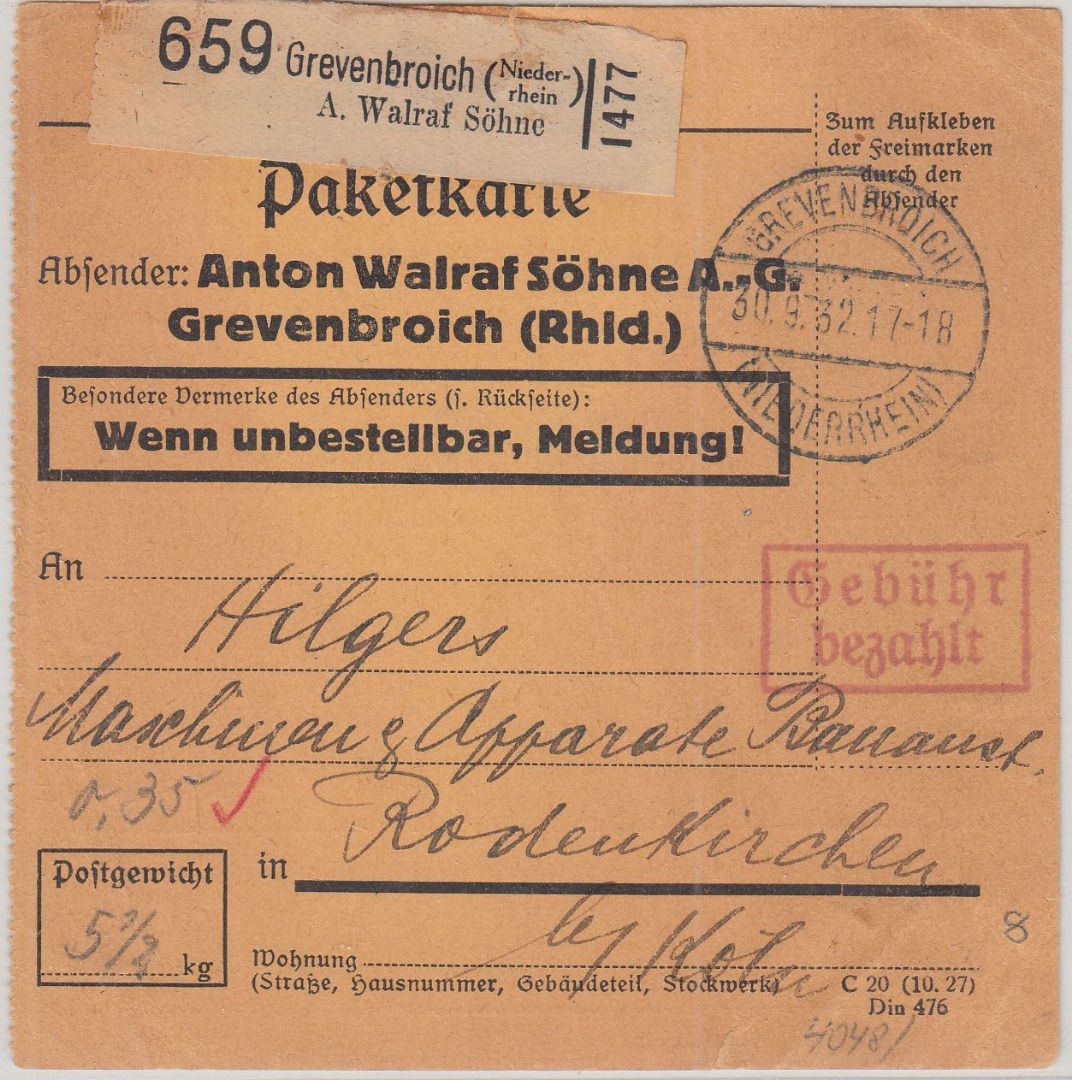 659 Grevenbroich (Nieder-rhein) 1477
A. Walraf Söhne
Paketkarte
Zum Aufkleben
der Freimarken
durch den
Absender
Absender: Anton Walraf Söhne A.-G.
Grevenbroich (Rhld.)
GREVENBROICH
30.9.32.17-18
(NIEDERRHEIN)
Besondere Vermerke des Absenders (s. Rückseite):
Wenn unbestellbar, Meldung!
An
Hilgers
Gebühr
bezahlt
Maschinen & Apparate Bauanst.
0,35
Rodenkirchen
in
Postgewicht
5 1/2 kg
by Köln
8
Wohnung
(Straße, Hausnummer, Gebäudeteil, Stockwerk)
C 20 (10. 27)
Din 476
4048